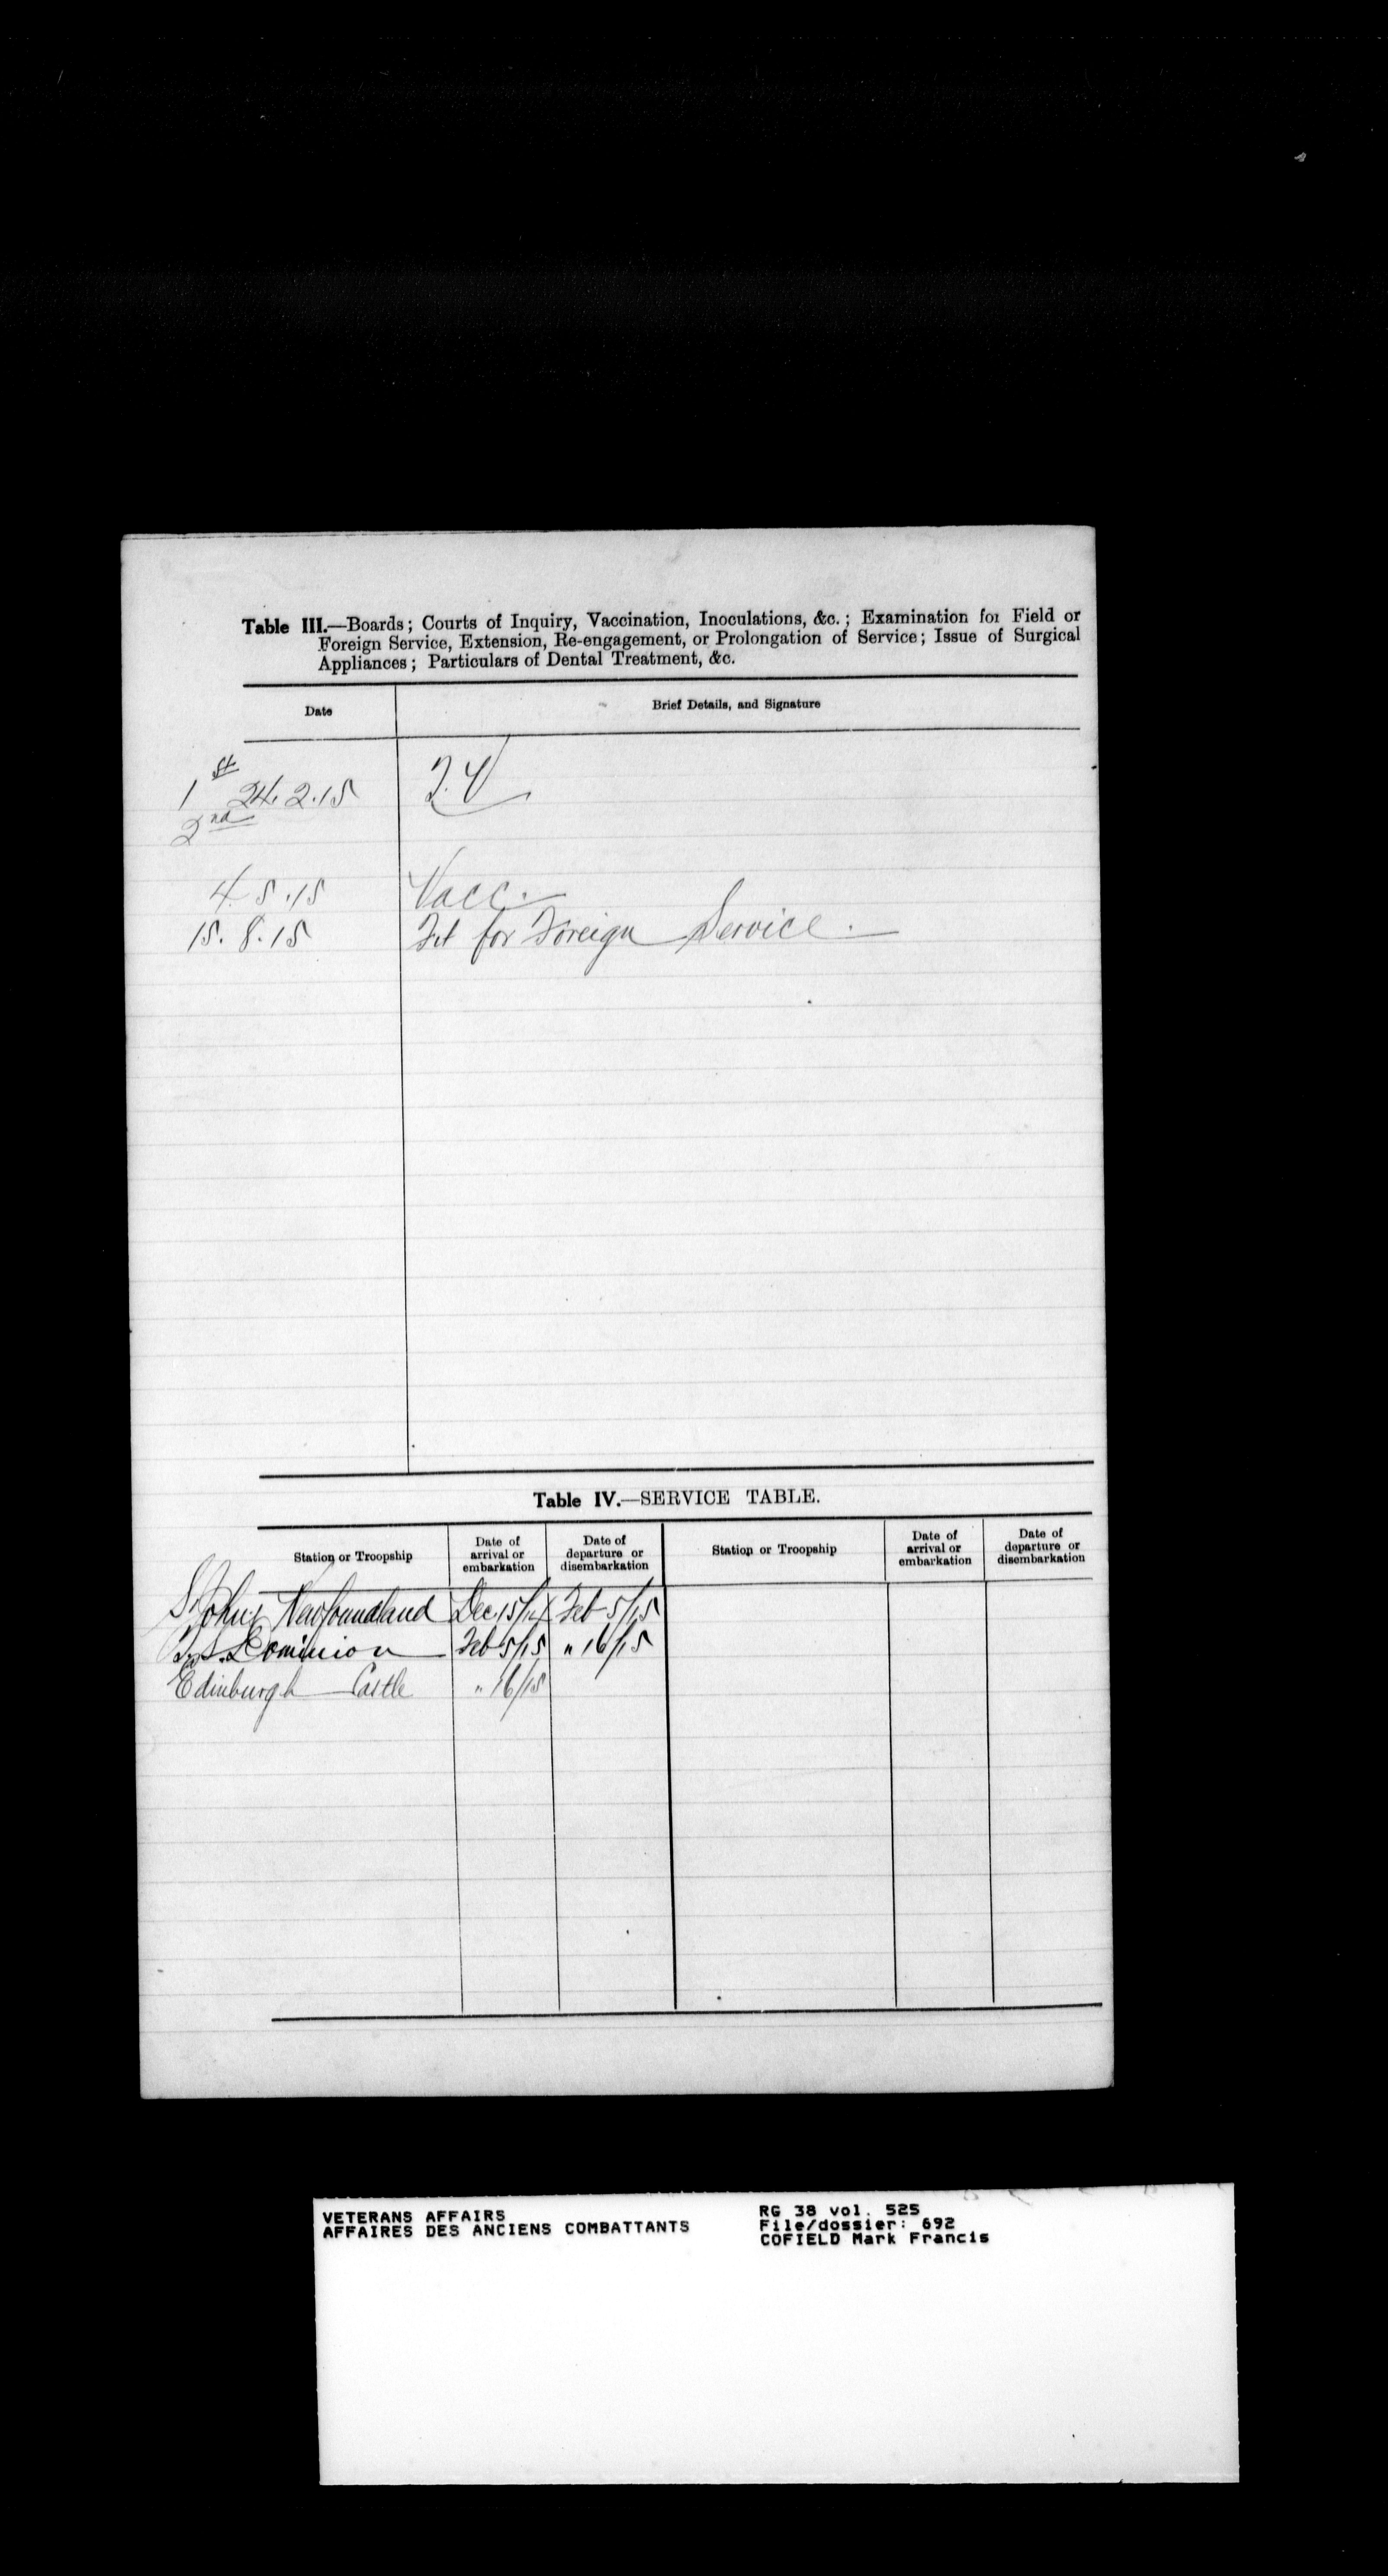 Table III.—Boards; Courts of Inquiry, Vaccination, Inoculations, &c.; Examination for Field or
Foreign Service, Extension, Re-engagement, or Prolongation of Service; Issue of Surgical
Appliances; Particulars of Dental Treatment, &c.
Date Brief Details, and Signature
1st 24.2.15 T.V
2nd
4.5.15 Vacc.
15.8.15 Fit for Foreign Service.
Table IV.—SERVICE TABLE.
Station or Troopship Date of arrival or embarkation Date of departure or disembarkation Station or Troopship Date of arrival or embarkation Date of departure or disembarkation
St Johns Newfoundland Dec 15/14 Feb 5/15
Dominion Feb 5/15 " 16/15
Edinburgh Castle " 16/15
VETERANS AFFAIRS
AFFAIRES DES ANCIENS COMBATTANTS
RG 38 vol. 525
File/dossier: 692
COFIELD Mark Francis